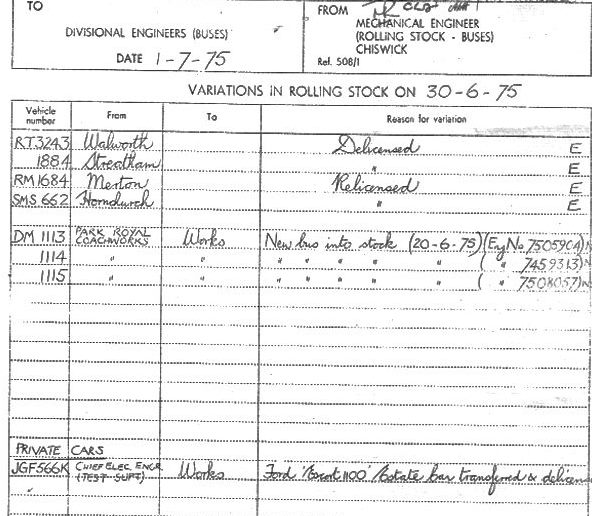 TO
DIVISIONAL ENGINEERS (BUSES)
DATE 1-7-75
FROM
MECHANICAL ENGINEER
(ROLLING STOCK - BUSES)
CHISWICK
Ref. 508/1
VARIATIONS IN ROLLING STOCK ON 30-6-75
Vehicle number From To Reason for variation
RT3243 Walworth Delicensed E
1884 Streatham " E
RM1684 Merton Relicensed E
SMS 662 Hornchurch " E
DM 1113 PARK ROYAL COACHWORKS Works New bus into stock (20-6-75) (Eng No 7505904) N
1114 " " " " " " " ( " 7459313) N
1115 " " " " " " " ( " 7508057) N
PRIVATE CARS
JGF566K CHIEF ELEC. ENGR. (TEST SUPT) Works Ford 'Escort 1100' Estate car transferred & delicen